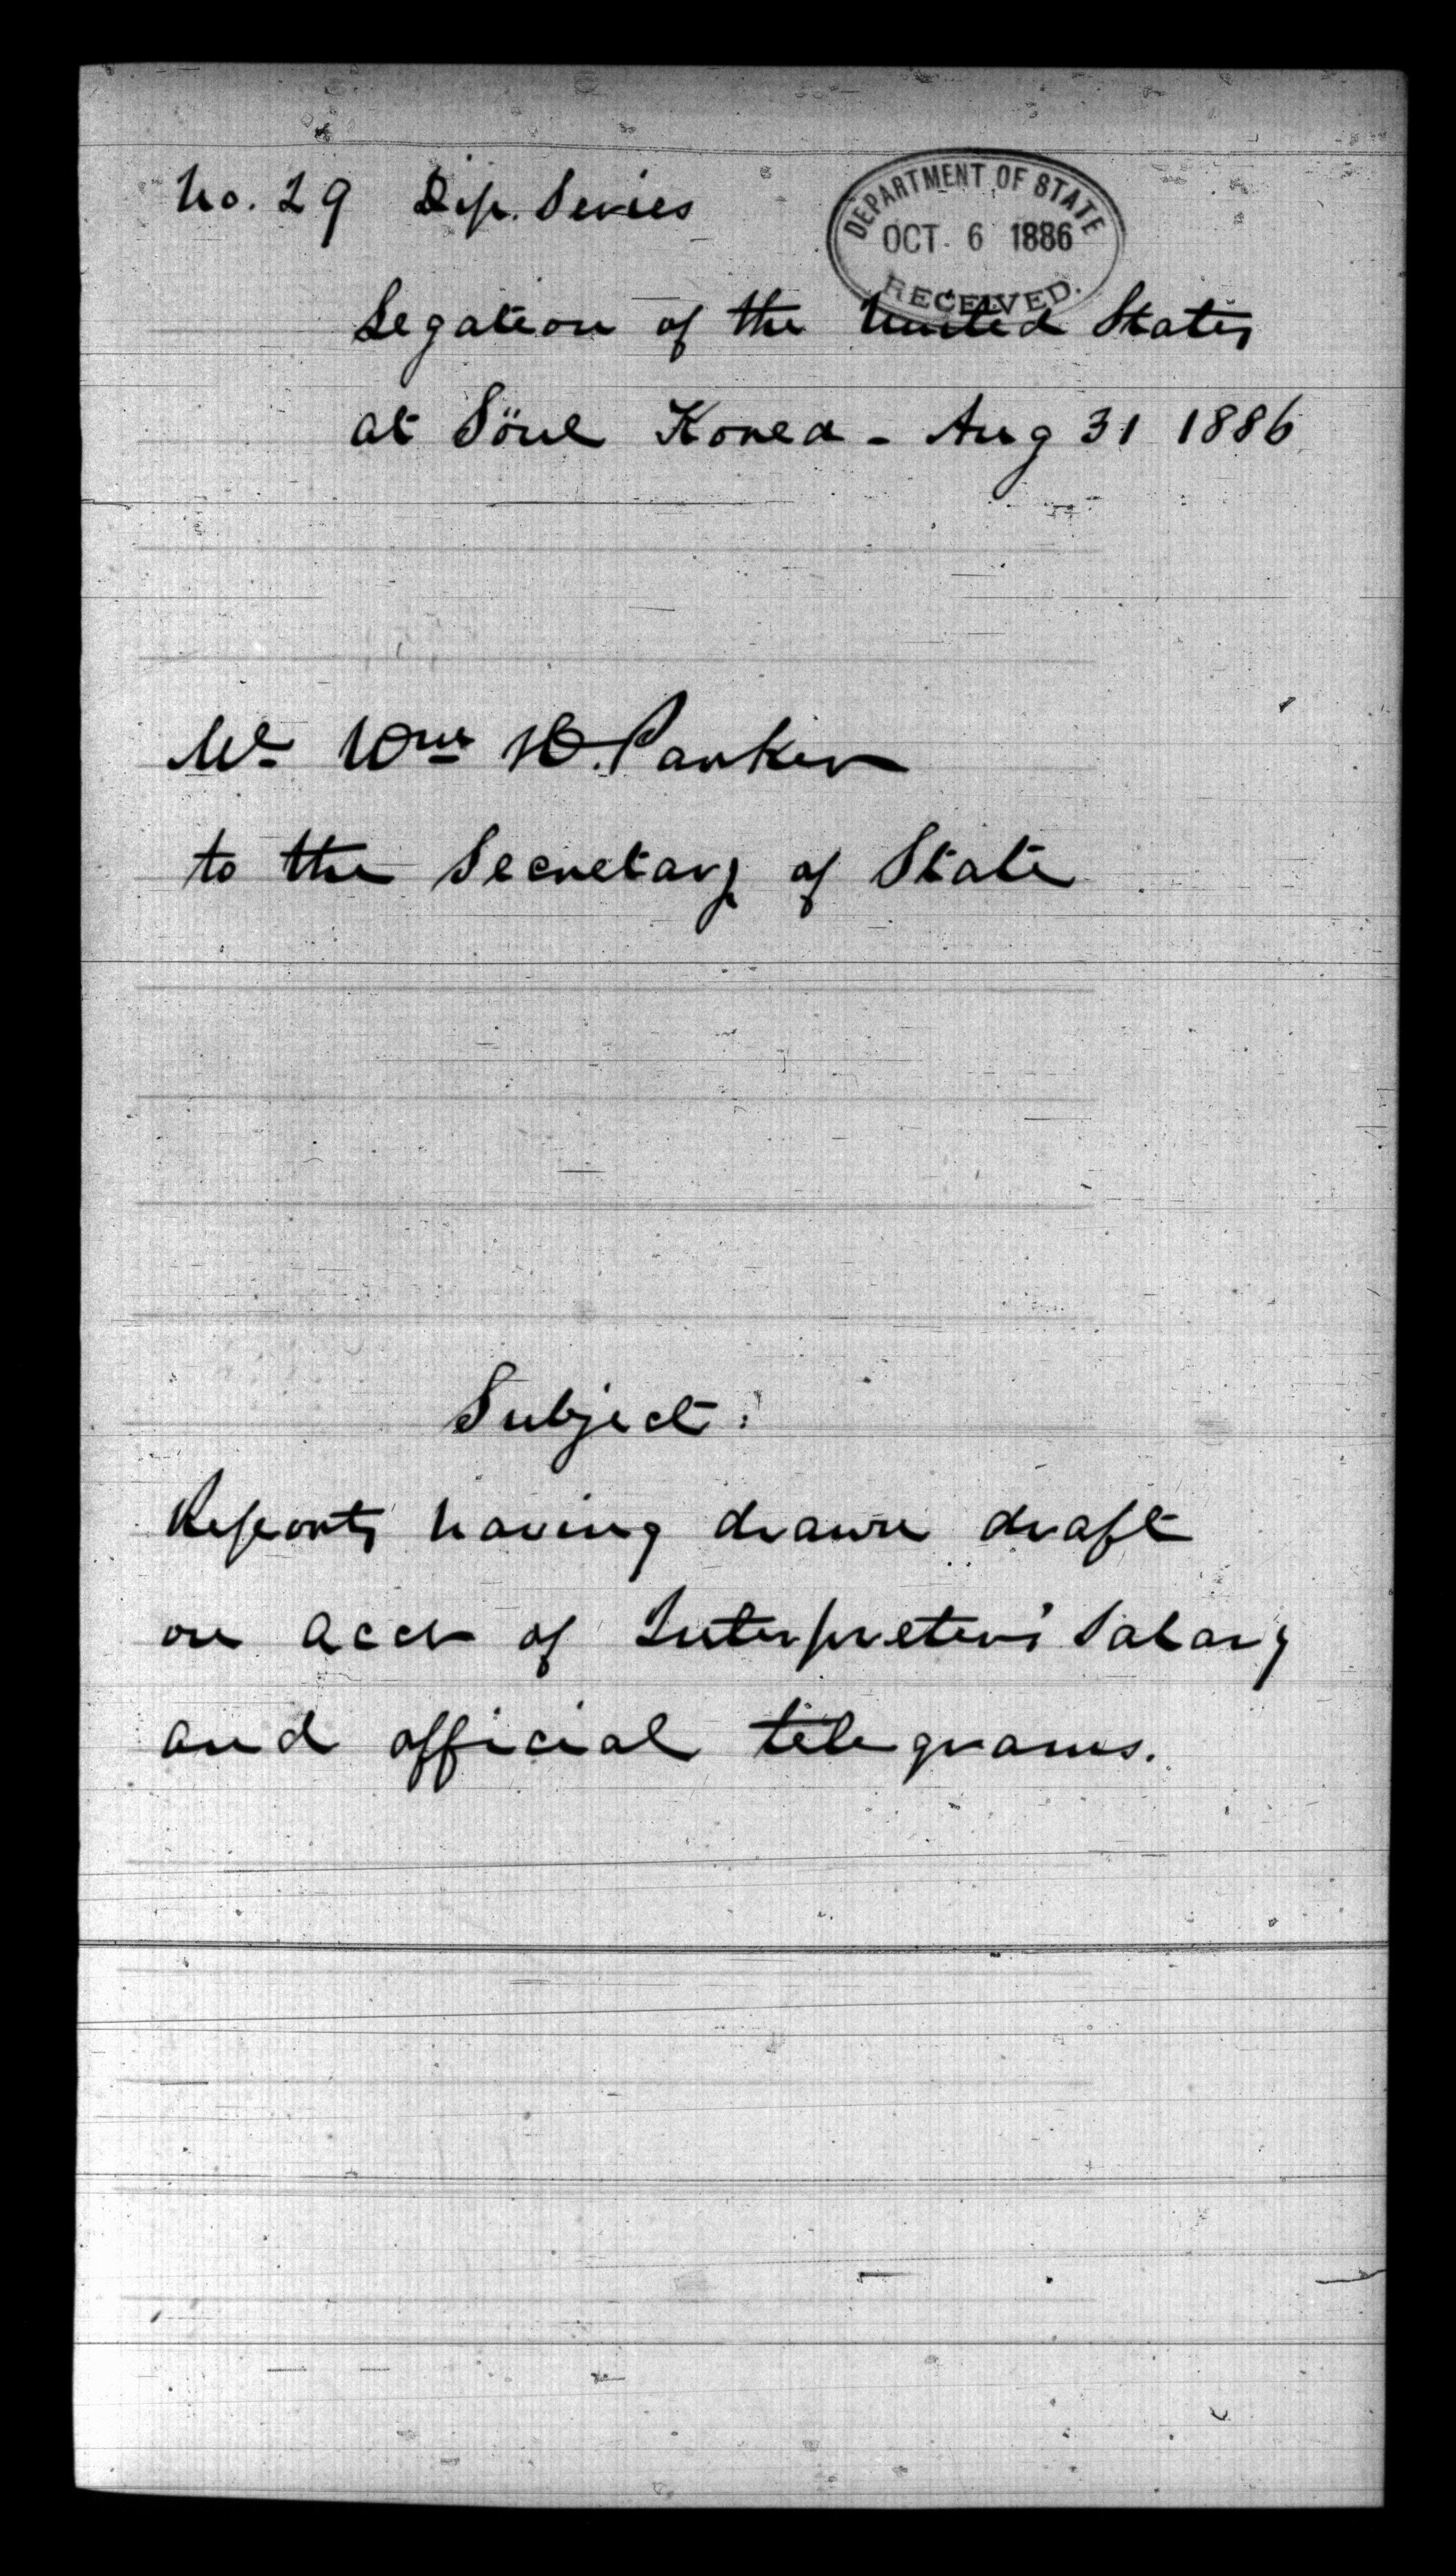 No. 29 Dip. Series
DEPARTMENT OF STATE
OCT 6 1886
RECEIVED.
Legation of the United States
at Söul Korea - Aug 31 1886
Mr Wm H. Parker
to the Secretary of State
Subject:
Reports having drawn draft
on acct of Interpreter's Salary
and official telegrams.